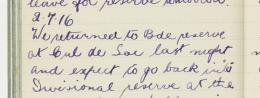 leave for reserve tomorrow.
2.7.16
We returned to Bde. reserve
at Cul de Sac last night
and expect to go back into
Divisional reserve at the